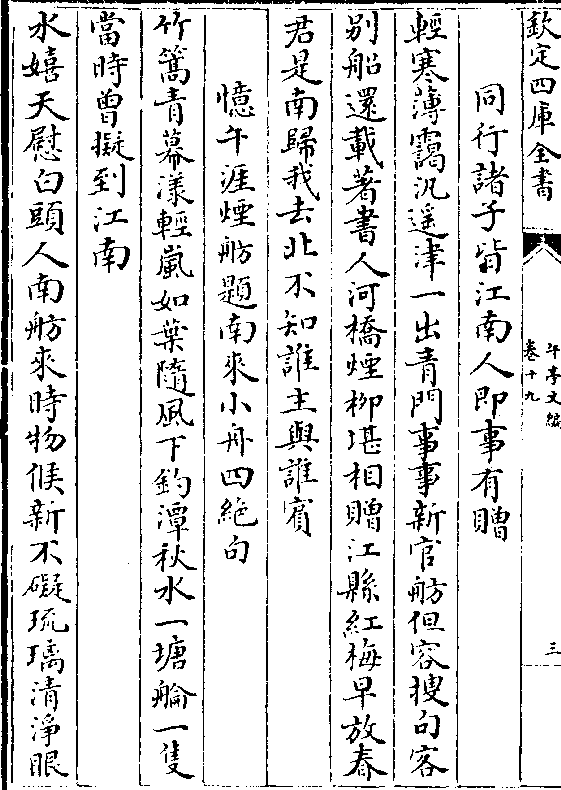 欽定四庫全書
午亭文編
卷十九
三
同行諸子皆江南人即事有贈
輕寒薄靄汎遥津一出青門事事新官舫但容搜句客
别船還載著書人河橋煙柳堪相贈江縣紅梅早放春
君是南歸我去北不知誰主與誰賓
憶午涯煙舫題南來小舟四絶句
竹篙青幕漾輕嵐如葉隨風下釣潭秋水一塘舲一隻
當時曾擬到江南
水嬉天慰白頭人南舫來時物候新不礙琉璃清淨眼